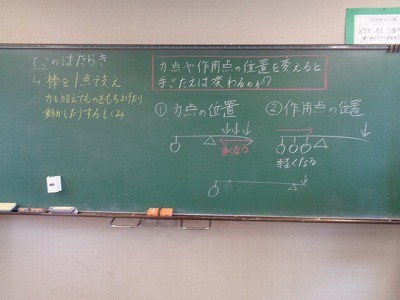 てこのはたらき
↳ 棒を1点で支え
力を加えてものをもち上げたり
動かしたりするしくみ
力点や作用点の位置を変えると
手ごたえは変わるのか?
① 力点の位置
軽くなる
② 作用点の位置
軽くなる